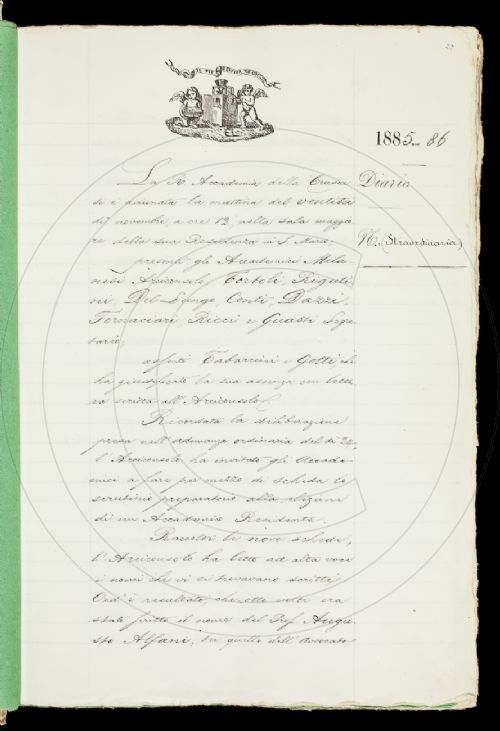 23
IL PIÙ BEL FIOR NE COGLIE
1885-86
Diario
N. (Straordinaria)
La R. Accademia della Crusca
si è adunata la mattina del ventitrè
di novembre, a ore 12, nella sala maggio-
re della sua Residenza in S. Marco,
presenti gli Accademici Mila-
nesi Arciconsolo, Tortoli, Riguti-
ni, Del Lungo, Conti, Dazzi,
Fornaciari, Ricci e Guasti Segre-
tario;
assenti Tabarrini e Gotti, che
ha giustificato la sua assenza con lette-
ra scritta all'Arciconsolo.
Ricordata la deliberazione
presa nell'adunanza ordinaria del dì 22,
l'Arciconsolo ha invitato gli Accade-
mici a fare per mezzo di scheda lo
scrutinio preparatorio alla elezione
di un Accademico Residente.
Raccolte le nove schede,
l'Arciconsolo ha letto ad alta voce
i nomi che vi si trovavano scritti.
Ond'è resultato, che otto volte era
stato scritto il nome del Prof. Augu-
sto Alfani, tre quello dell'Avvocato